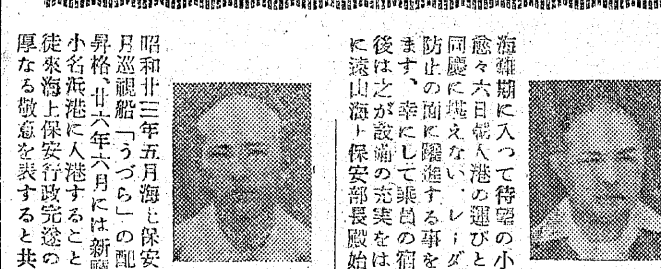 海難期に入つて待望の小
愈々六日朝入港の運びと
同慶に堪えない、レーダ
防止の面に躍進する事を
ます、幸にして乗員の宿
後は之が設備の充実をは
に遠山海上保安部長殿始
昭和廿三年五月海上保安
月巡視船「うづら」の配
昇格、廿六年六月には新
小名浜港に入港すること
従来海上保安行政完遂の
厚なる敬意を表すると共